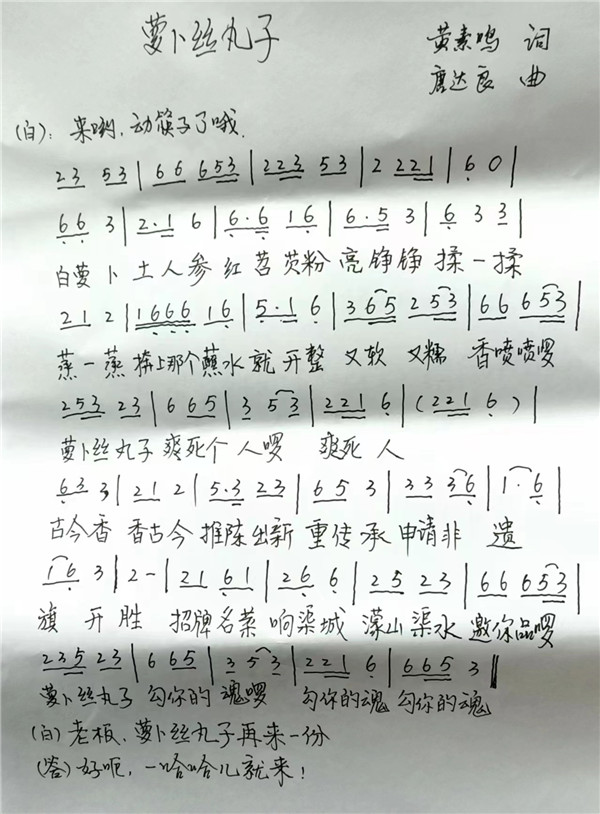 萝卜丝丸子
黄素鸣 词
唐达良 曲
(白): 来哟,动筷子了哦.
23 53 | 66 653 | 223 53 | 2 221 | 6 0 |
66 3 | 2·1 6 | 6·6 16 | 6·5 3 | 6 3 3 |
白萝卜 土人参 红苕芡粉 亮铮铮 揉一揉
21 2 | 1666 16 | 5·1 6 | 365 253 | 66 653 |
蒸一蒸 捞上那个蘸水就开整 又软 又糯 香喷喷啰
253 23 | 6 65 | 3 53 | 221 6 | (221 6) |
萝卜丝丸子 爽死个人啰 爽死人
63 3 | 21 2 | 5·3 23 | 65 3 | 33 36 | 1·6 |
古今香 香古今 推陈出新 重传承 申请非遗
16 3 | 2- | 21 61 | 26 6 | 25 23 | 66 653 |
旗开胜 招牌名菜 响渠城 濛山渠水 邀你品啰
235 23 | 6 65 | 3 53 | 221 6 | 665 3 ‖
萝卜丝丸子 勾你的 魂啰 勾你的魂 勾你的魂
(白) 老板,萝卜丝丸子再来一份
(答) 好呃,一哈哈儿就来!